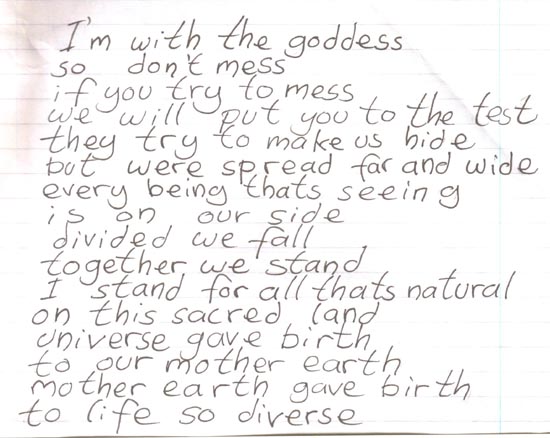 I'm with the goddess
so don't mess
if you try to mess
we will put you to the test
they try to make us hide
but were spread far and wide
every being thats seeing
is on our side
divided we fall
together we stand
I stand for all thats natural
on this sacred land
universe gave birth
to our mother earth
mother earth gave birth
to life so diverse